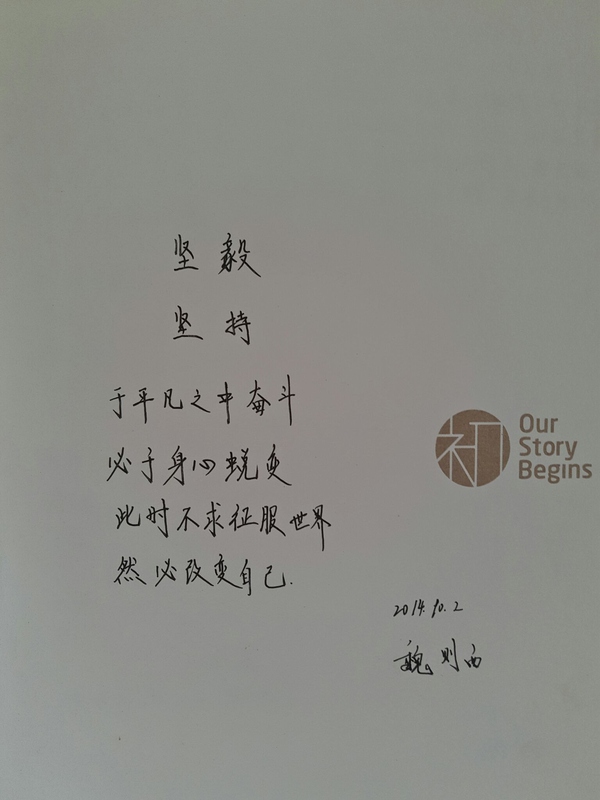 坚毅
坚持
于平凡之中奋斗
必于身心蜕变
此时不求征服世界
然必改变自己.
初
Our
Story
Begins
2014.10.2
魏则西